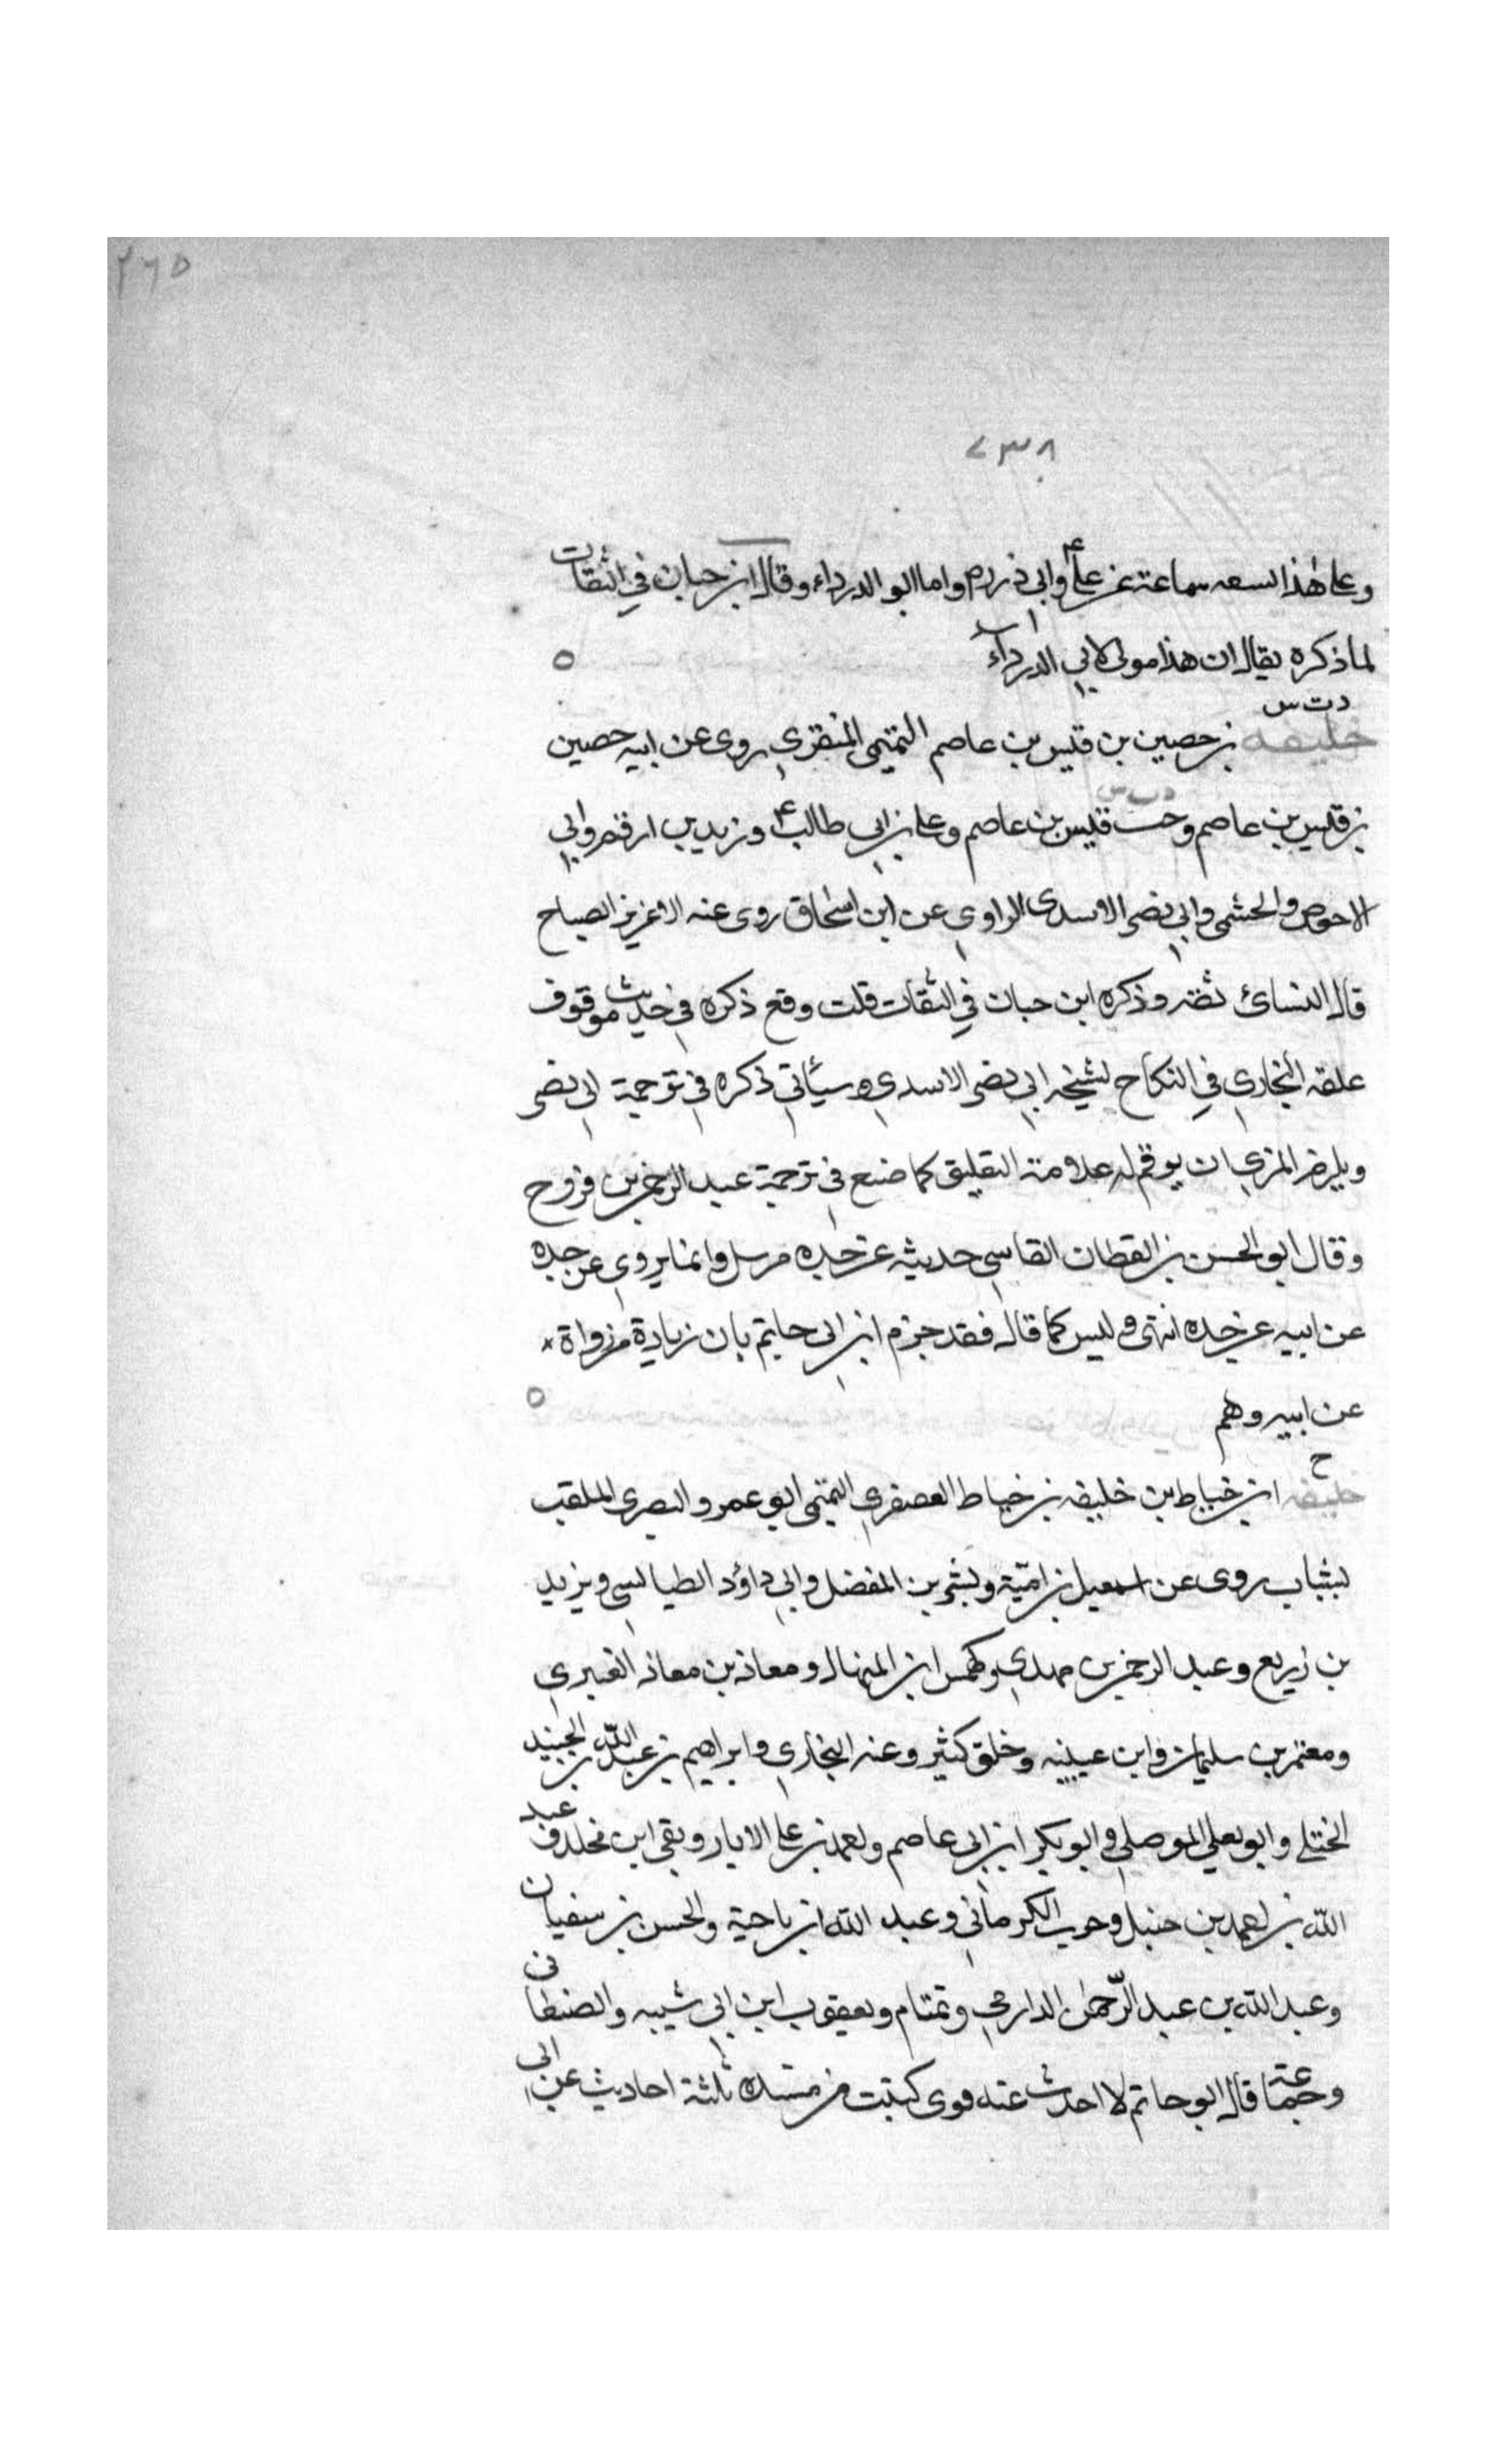 ٢٦٥
٧٣٨
وعلى هذا سماعة عن علي وابي ذر وم واما ابو الدرداء وقال ابن حبان في الثقات
لما ذكره يقال ان هذا مولى لابي الدرداء
د ت س
خليفه بن حصين بن قيس بن عاصم التميمي المنقري روى عن ابيه حصين
بن قيس بن عاصم و قيس بن عاصم وعلي بن ابي طالب وزيد بن ارقم وابي
الاحوص والحشمي وابي نصر الاسدي الراوي عن ابن اسحاق روى عنه الاغر بن الصباح
قال النسائي ثقه وذكره ابن حبان في الثقات قلت وقع ذكره في حديث موقوف
علقه البخاري في النكاح لشيخه ابي نصر الاسدي وسيأتي ذكره في ترجمة ابي نصر
المزي ان يرقم له علامة التعليق كما صنع في ترجمة عبد الرحمن بن فروح
وقال ابو الحسن بن القطان الفاسي حديثه عن جده مرسل وانما يروي عن جده
عن ابيه عن جده انتهى وليس كما قال فقد جزم ابن ابي حاتم بان زيادة من رواة
عن ابيه وهم
خ
خليفه ابن خياط بن خليفه بن خياط العصفري التميمي ابو عمرو البصري الملقب
بشباب روى عن اسمعيل بن امية وبشر بن المفضل وابي داؤد الطيالسي ويزيد
بن زريع وعبد الرحمن بن مهدي وكهمس ابن المنهال ومعاذ بن معاذ العنبري
ومعتمر بن سليمان وابن عيينه وخلق كثير وعنه البخاري وابراهيم بن عبد الله بن الجنيد
الختلي وابو يعلي الموصلي وابو بكر ابن ابي عاصم واحمد بن علي الابار وبقي ابن مخلد وعبد
الله بن احمد بن حنبل وحرب الكرماني وعبد الله ابن ناحية والحسن بن سفيان
وعبد الله بن عبد الرحمن الدارمي وتمتام ويعقوب ابن ابي شيبه والصنعاني
وجماعة قال ابو حاتم لا احدث عنه قوى كتبت من مسنده ثلثة احاديث عن ابي